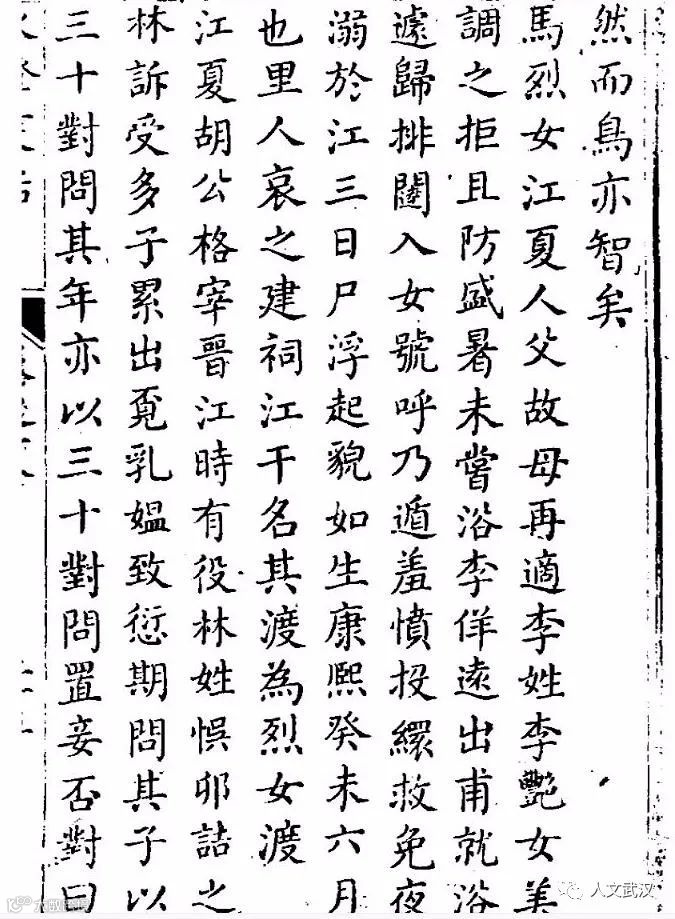 然而鳥亦智矣
馬烈女江夏人父故母再適李姓李艷女美
調之拒且防盛暑未嘗浴李佯遠出甫就浴
遽歸排闥入女號呼乃遁羞憤投繯救免夜
溺於江三日尸浮起貌如生康熙癸未六月
也里人哀之建祠江干名其渡為烈女渡
江夏胡公格宰晉江時有役林姓悞卯詰之
林訴受多子累出覔乳媼致愆期問其子以
三十對問其年亦以三十對問置妾否對曰
人文武汉